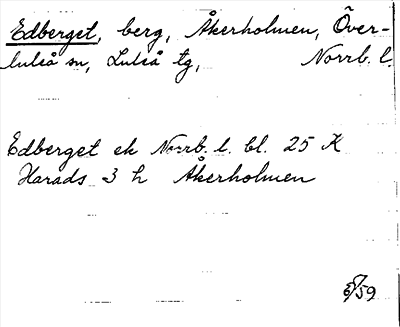 Edberget, berg, Åkerholmen, Över-
luleå sn, Luleå tg, Norrb. l.
Edberget ek Norrb. l. bl. 25 K
Harads 3 h Åkerholmen
/59